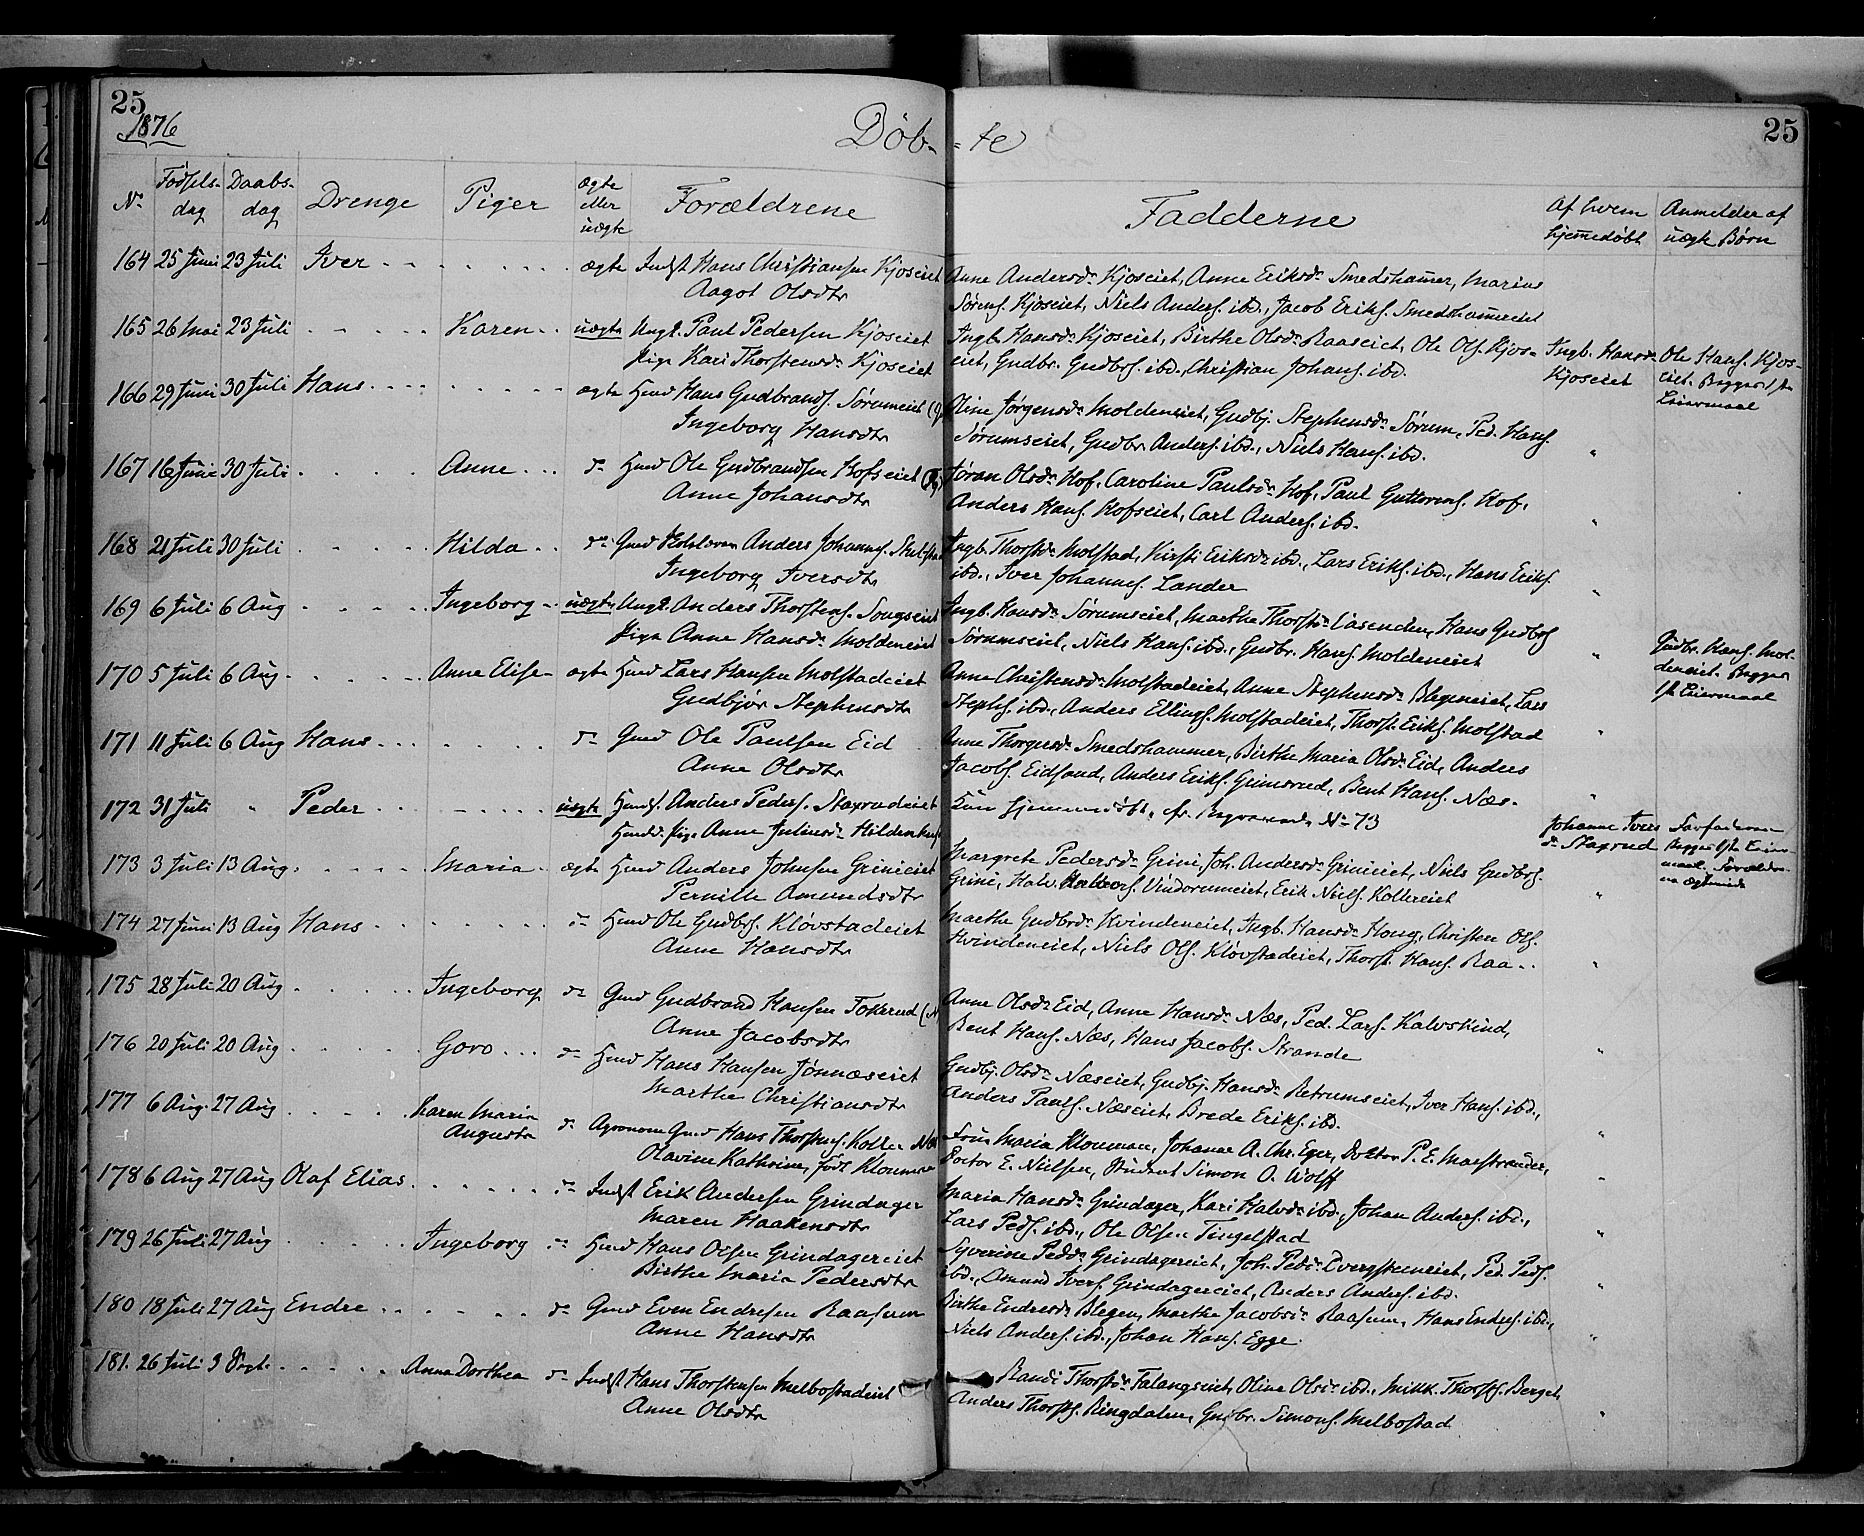 25
25
1876
Døb-
-te
No
Fødsels-
dag
Daabs-
dag
Drenge
Piger
ægte
eller
uægte
Forældrene
Fadderne
Af hvem
hjemmedøbt
Anmelder af
uægte Børn
164 25 Juni 23 Juli Iver ægte Indst Hans Christiansen Kjoseiet
Aagot Olsdtr
Anne Andersdr Kjoseiet, Anne Eriksdr Smedshamer, Marius
Sørens. Kjoseiet, Niels Anders. ibd., Jacob Eriks. Smedshamereiet
165 26 Mai 23 Juli Karen uægte Ungk. Paul Pedersen Kjoseiet
Pige Kari Thorstensdr Kjoseiet
Ingb. Hansdr Kjoseiet, Birthe Olsdr Raaseiet, Ole Ols. Kjos-
eiet, Gudbr. Gudbrs. ibd., Christian Johans. ibd.
Ingb. Hansdr
Kjoseiet
Ole Hans. Kjos-
eiet. Begges 1ste
Leiermaal
166 29 Juni 30 Juli Hans ægte Husmd Hans Gudbrands. Sørumeiet
Ingeborg Hansdtr
Oline Jørgensdr Moldeneiet, Gudbj. Stephensdr Sørum, Ped. Hans.
Sørumseiet, Gudbr. Anders. ibd., Niels Hans. ibd.
167 16 Juni 30 Juli Anne do Husmd Ole Gudbrandsen Hofseiet
Anne Johansdtr
Jøran Olsdr Hof, Caroline Paulsdr Hof, Paul Guttorms. Hof,
Anders Hans. Hofseiet, Carl Anders. ibd.
168 21 Juli 30 Juli Hilda do Gmd Anders Johannes.
Ingeborg Iversdtr
Ingb. Thorstdr Molstad, Kirsti Eriksdr ibd., Lars Eriks. ibd., Hans Eriks.
ibd., Iver Johannes. Lander
169 6 Juli 6 Aug Ingeborg uægte Ungk. Anders Thorstens. Songseiet
Pige Anne Hansdr Moldeneiet
Ingb. Hansdr Sørumseiet, Marthe Thorstdr Hans Gudbrs.
Sørumseiet, Niels Hans. ibd., Gudbr. Hans. Moldeneiet
Gudbr. Hans. Mol-
deneiet. Begges
1ste Leiermaal
170 5 Juli 6 Aug Anne Elise ægte Husmd Lars Hansen Molstadeiet
Gudbjør Stephensdtr
Anne Christensdr Molstadeiet, Anne Stephensdr Blegeneiet, Lars
Stephs. ibd., Anders Ellings. Molstadeiet, Thorst. Eriks. Molstad
171 11 Juli 6 Aug Hans do Gmd Ole Paulsen Eid
Anne Olsdtr
Anne Thorgersdr Smedshammer, Birthe Maria Olsdr Eid, Anders
Jacobs. Eidsand, Anders Eriks. Grimsrud, Bent Hans. Næs.
172 31 Juli " Peder uægte Anders Peders. Staxrudeiet
Pige Anne Juliusdr
Kun hjemmedøbt, cfr. No 73
Johanne Ivers
dr Staxrud
Barnefaderen
Begges 1ste Leier-
maal. Forældre-
173 3 Juli 13 Aug Maria ægte Husmd Anders Johnsen Grinieiet
Pernille Amundsdtr
Margrete Pedersdr Grini, Joh. Andersdr Grinieiet, Niels Gudbrs.
Grini, Halv. Halvors. Vindorumeiet, Erik Niels. Kollereiet
174 27 Juni 13 Aug Hans do Husmd Ole Gudbrs. Kløvstadeiet
Anne Hansdtr
Marthe Gudbrdr Kvindeneiet, Ingb. Hansdr Houg, Christen Ols.
Kvindeneiet, Niels Ols. Kløvstadeiet, Thorst. Hans. Raa
175 28 Juli 20 Aug Ingeborg do Gmd Gudbrand Hansen Tokerud
Anne Jacobsdtr
Anne Olsdr Eid, Anne Hansdr Næs, Ped. Lars. Kalvskind,
Bent Hans. Næs, Hans Jacobs. Strande
176 20 Juli 20 Aug Goro do Husmd Hans Hansen Jønnæseiet
Marthe Christiansdtr
Gudbj. Olsdr Næseiet, Gudbj. Hansdr Retrumseiet, Iver Hans. ibd.,
Anders Pauls. Næseiet, Brede Eriks. ibd.
177 6 Aug 27 Aug Karen Maria
Augusta do Agronom Gmd Hans Thorstens. Koller
Olavine Kathrine, født Klouman
Frue Maria Klouman, Johanne A. Chr. Eger, Doktor P. E. Maestrander,
Doctor E. Nielsen, Student Simon O. Wolff
178 6 Aug 27 Aug Olaf Elias do Indst Erik Andersen Grindager
Maren Haakensdtr
Maria Hansdr Grindager, Kari Halvdr ibd., Johan Anders. ibd.,
Lars Peds. ibd., Ole Olsen Tingelstad
179 26 Juli 27 Aug Ingeborg do Husmd Hans Olsen Grindagereiet
Birthe Maria Pedersdtr
Syverine Peddr Grindagereiet, Joh. Peddr Dvergsteeneiet, Ped. Peds.
ibd., Amund Ivers. Grindagereiet, Anders Anders. ibd.
180 18 Juli 27 Aug Endre do Gmd Even Endresen Raasum
Anne Hansdtr
Birthe Endresdr Blegen, Marthe Jacobsdr Raasum, Hans Endres. ibd.,
Niels Anders. ibd., Johan Hans. Egge.
181. 26 Juli 3 Sept. Anna Dorthea do Indst Hans Thorstensen Melbostadeiet
Anne Olsdtr
Randi Thorstdr Falangseiet, Oline Olsdr ibd., Mikk. Thorsts. Berget,
Anders Thorsts. Ringdalen, Gudbr. Simons. Melbostad